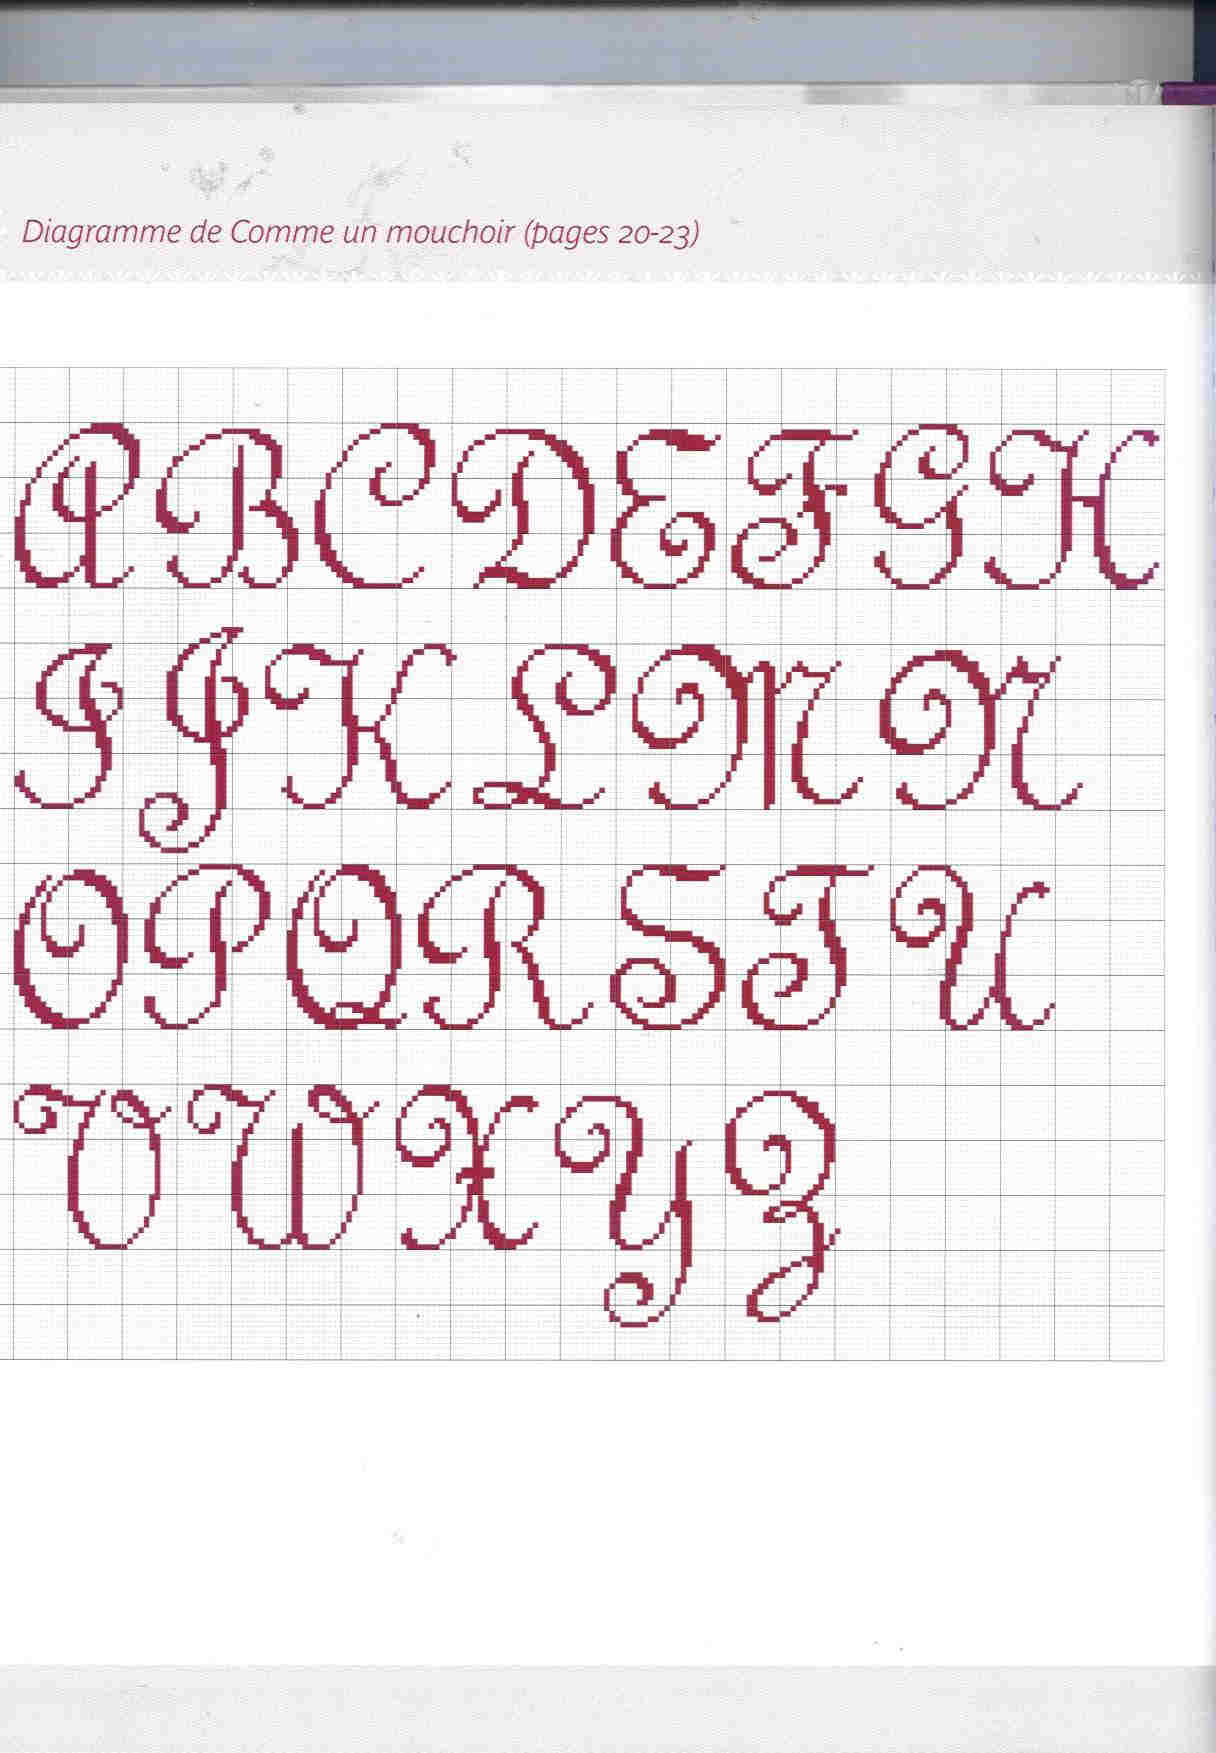 Diagramme de Comme un mouchoir (pages 20-23)
A B C D E F G H
I J K L M N
O P Q R S T U
V W X Y Z